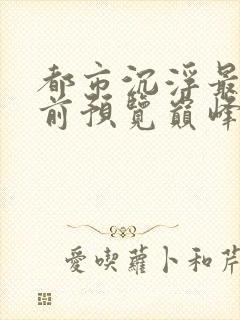 都市沉浮最
前預覽巔峰
愛喫蘿卜和芹